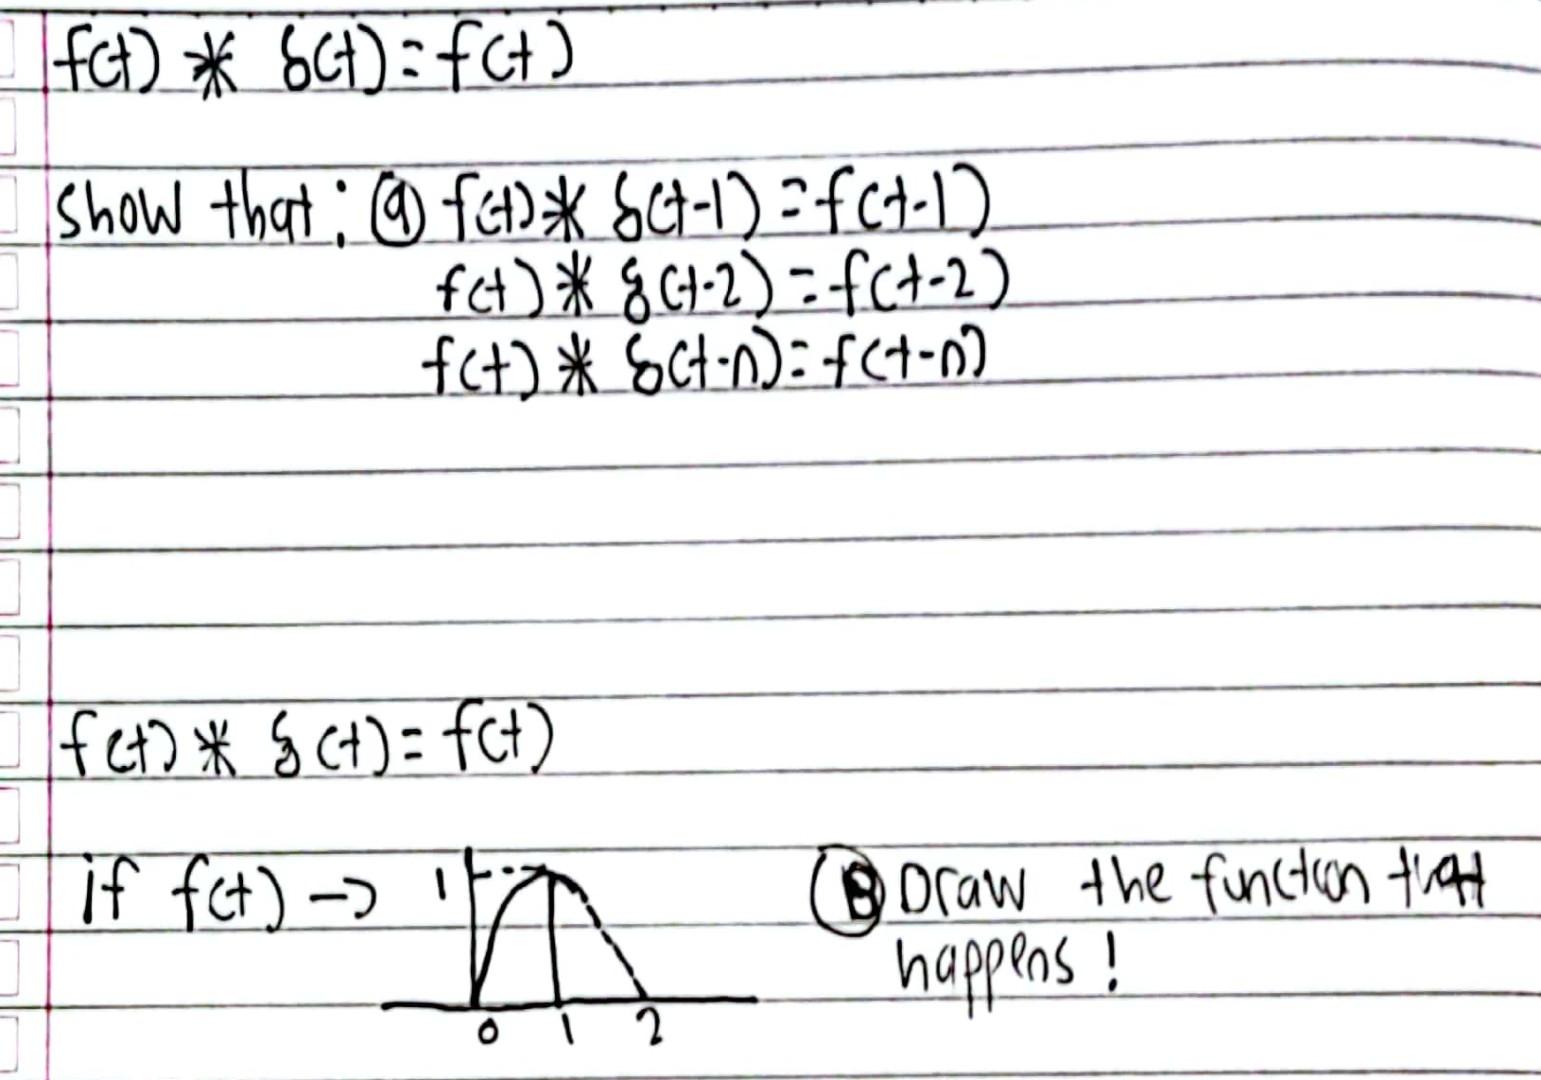 f(t) * δ(t) = f(t)
show that: ⓐ f(t) * δ(t-1) = f(t-1)
f(t) * δ(t-2) = f(t-2)
f(t) * δ(t-n) = f(t-n)
f(t) * δ(t) = f(t)
if f(t) → 1 Ⓑ Draw the function that
happens!
0 1 2